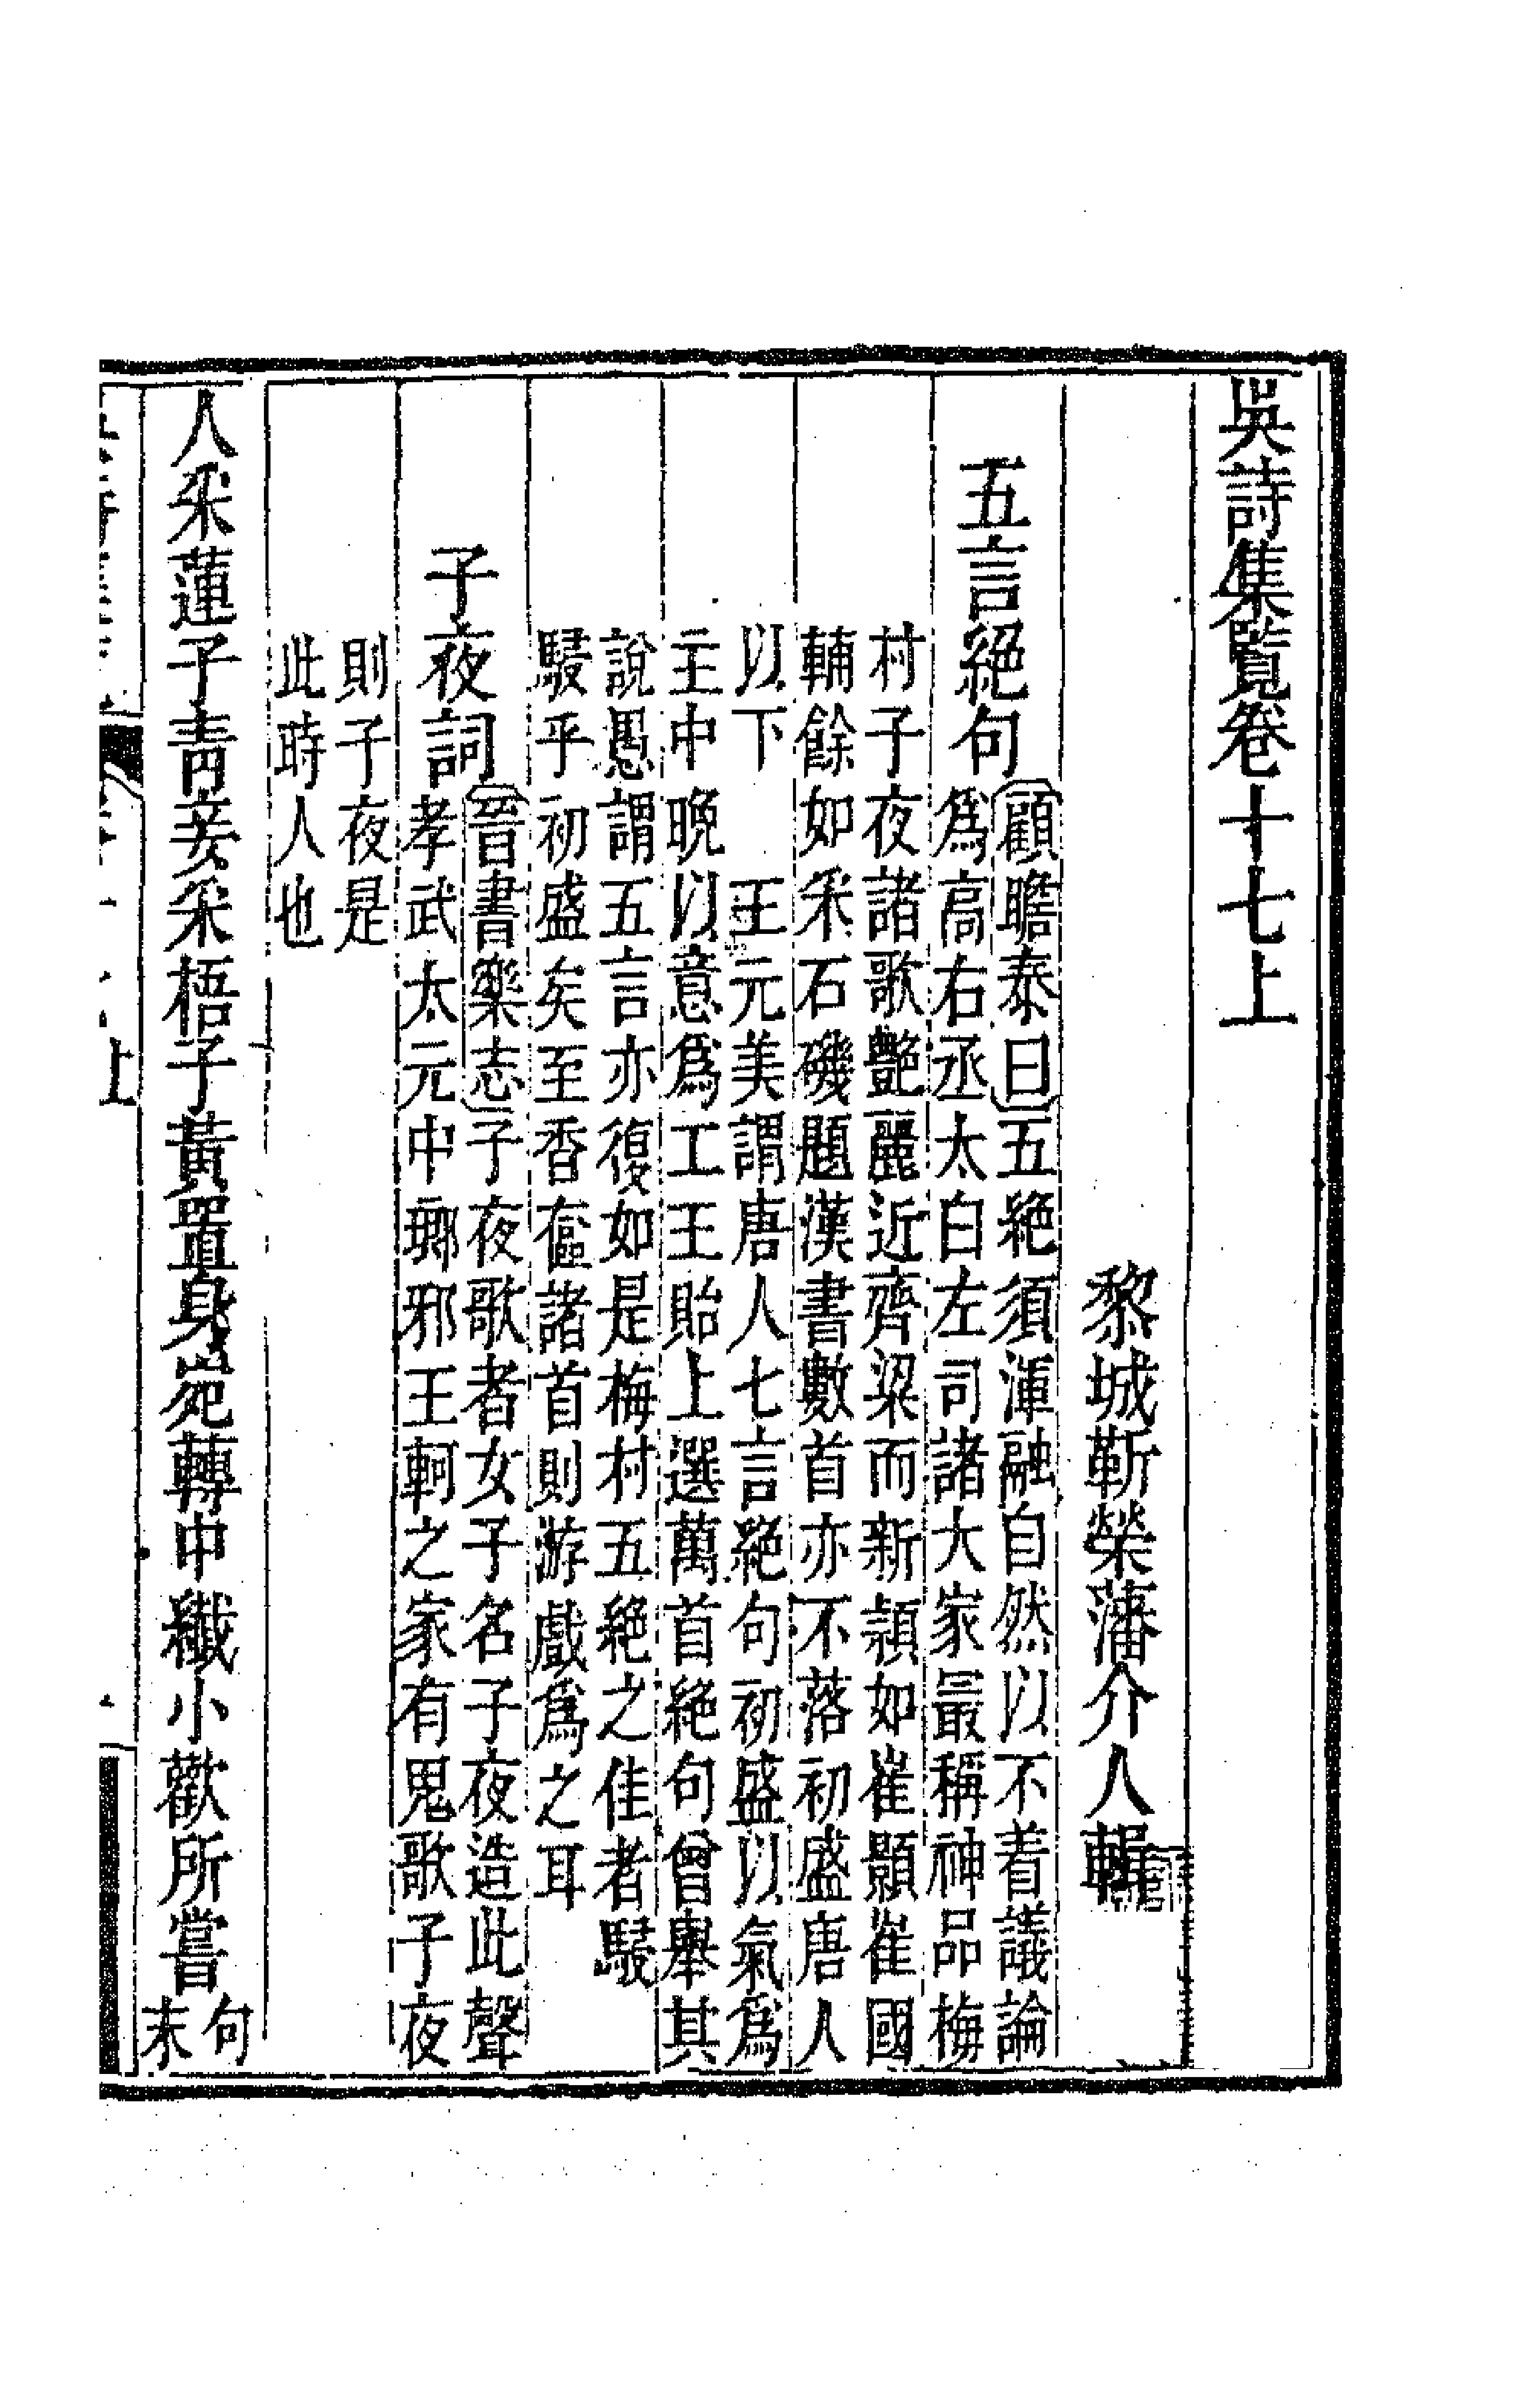 吳詩集覽卷十七上
黎城靳榮藩介人輯
五言絕句
顧瞻泰曰五絕須渾融自然以不着議論
爲高右丞太白左司諸大家最稱神品梅
村子夜諸歌艷麗近齊梁而新頴如崔顥崔國
輔餘如采石磯題漢書數首亦不落初盛唐人
以下 王元美謂唐人七言絕句初盛以氣爲
主中晚以意爲工王貽上選萬首絕句曾舉其
說愚謂五言亦復如是梅村五絕之佳者駸
駸乎初盛矣至香奩諸首則游戲爲之耳
子夜詞
晉書樂志子夜歌者女子名子夜造此聲
孝武太元中瑯邪王軻之家有鬼歌子夜
則子夜是
此時人也
人采蓮子青妾采梧子黃置身宛轉中纖小歡所嘗
句
末
上